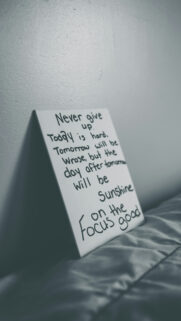 Never give
up
Today is hard.
Tomorrow will be
Wrose, but the
day after tomorrow
Will be
Sunshine
on the
Focus good